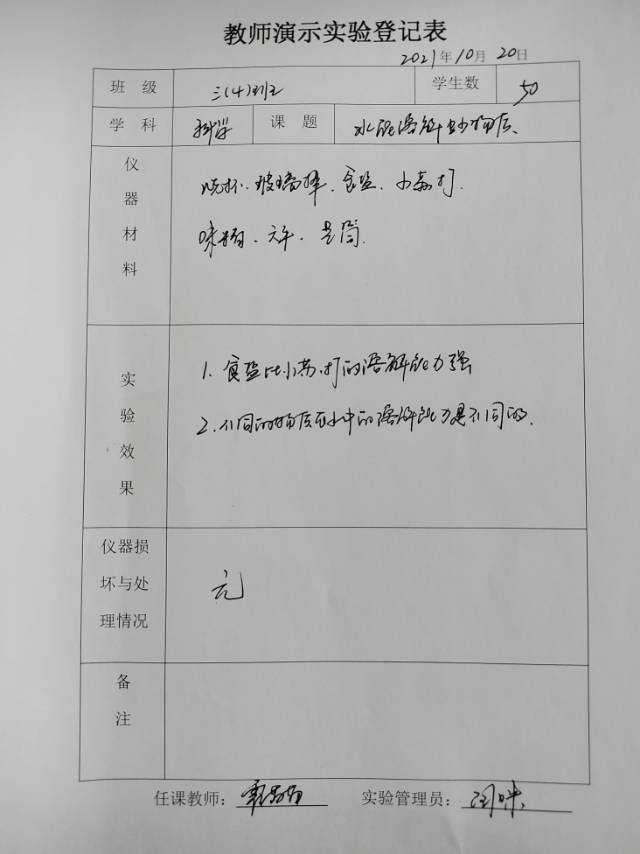 教师演示实验登记表
2021年10月20日
班 级 三(4)班 学生数 50
学 科 科学 课 题 水能溶解多少物质
仪器材料
烧杯、玻璃棒、食盐、小苏打、
味精、天平、量筒
实验效果
1. 食盐比小苏打的溶解能力强
2. 不同的物质在水中的溶解能力是不同的.
仪器损坏与处理情况
无
备注
任课教师： 实验管理员：